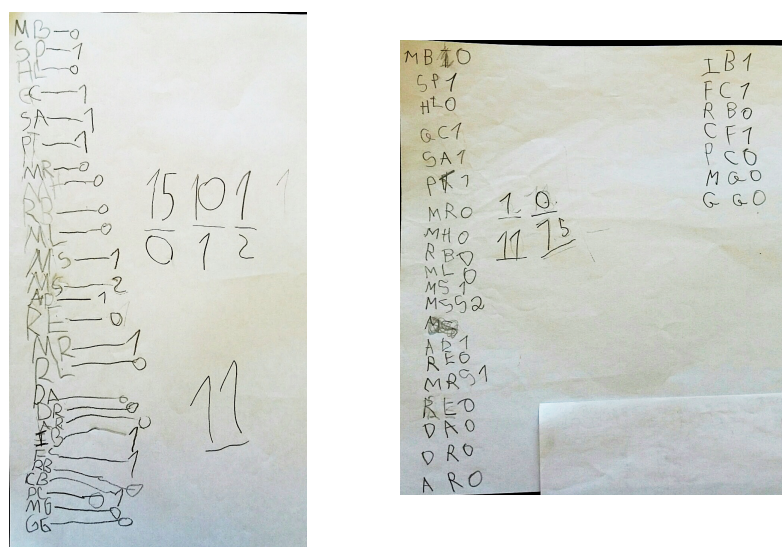 MB-0
SP-1
HL-0
GC-1
SA-1
PT-1
MR-0
MH-0
RB-0
ML-0
MS-1
MS-2
AB-1
RE-0
MR-1
RL-0
DA-0
DR-0
AR-0
IB-1
RB
CB
PC-0
MG
GG-0
15 10 1
0 1 2
11
MB 0
SP 1
HL 0
GC 1
SA 1
PT 1
MR 0
MH 0
RB 0
ML 0
MS 1
MSS 2
AB 1
RE 0
MRS 1
RE 0
DA 0
DR 0
AR 0
1 0
11 15
IB 1
FC 1
RB 0
CF 1
PC 0
MG 0
GG 0